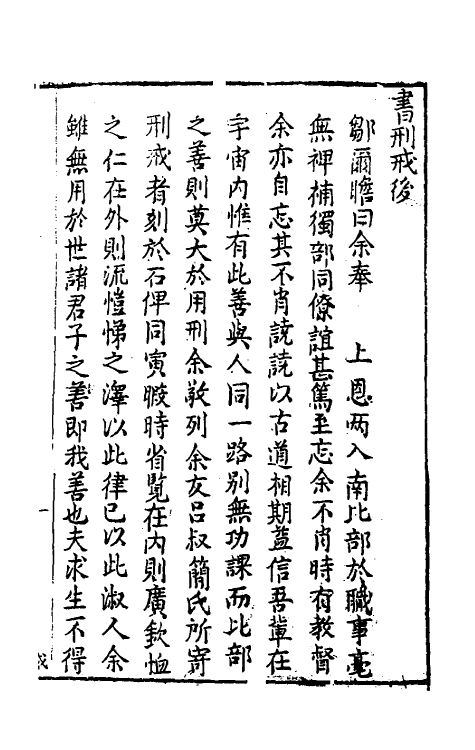 書刑戒後
鄒爾瞻曰余奉　上恩两入南比部於職事毫
無裨補獨部同僚誼甚篤至忘余不肖時有教督
余亦自忘其不肖譊譊以古道相期葢信吾輩在
宇宙内惟有此善與人同一路别無功課而比部
之善則莫大於用刑余敢列余友吕叔簡氏所寄
刑戒者刻於石俾同寅暇時省覧在内則廣欽恤
之仁在外則流愷悌之澤以此律巳以此淑人余
雖無用於世諸君子之善即我善也夫求生不得
一